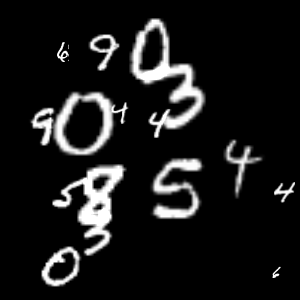 6 9 0
3
9 0 4 4
4
5 8 5 4
3
0 6